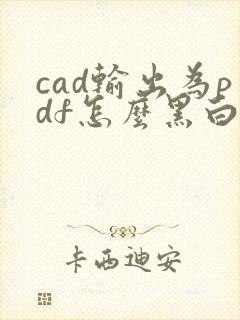 cad輸出為p
df怎麼黑白
卡西迪安